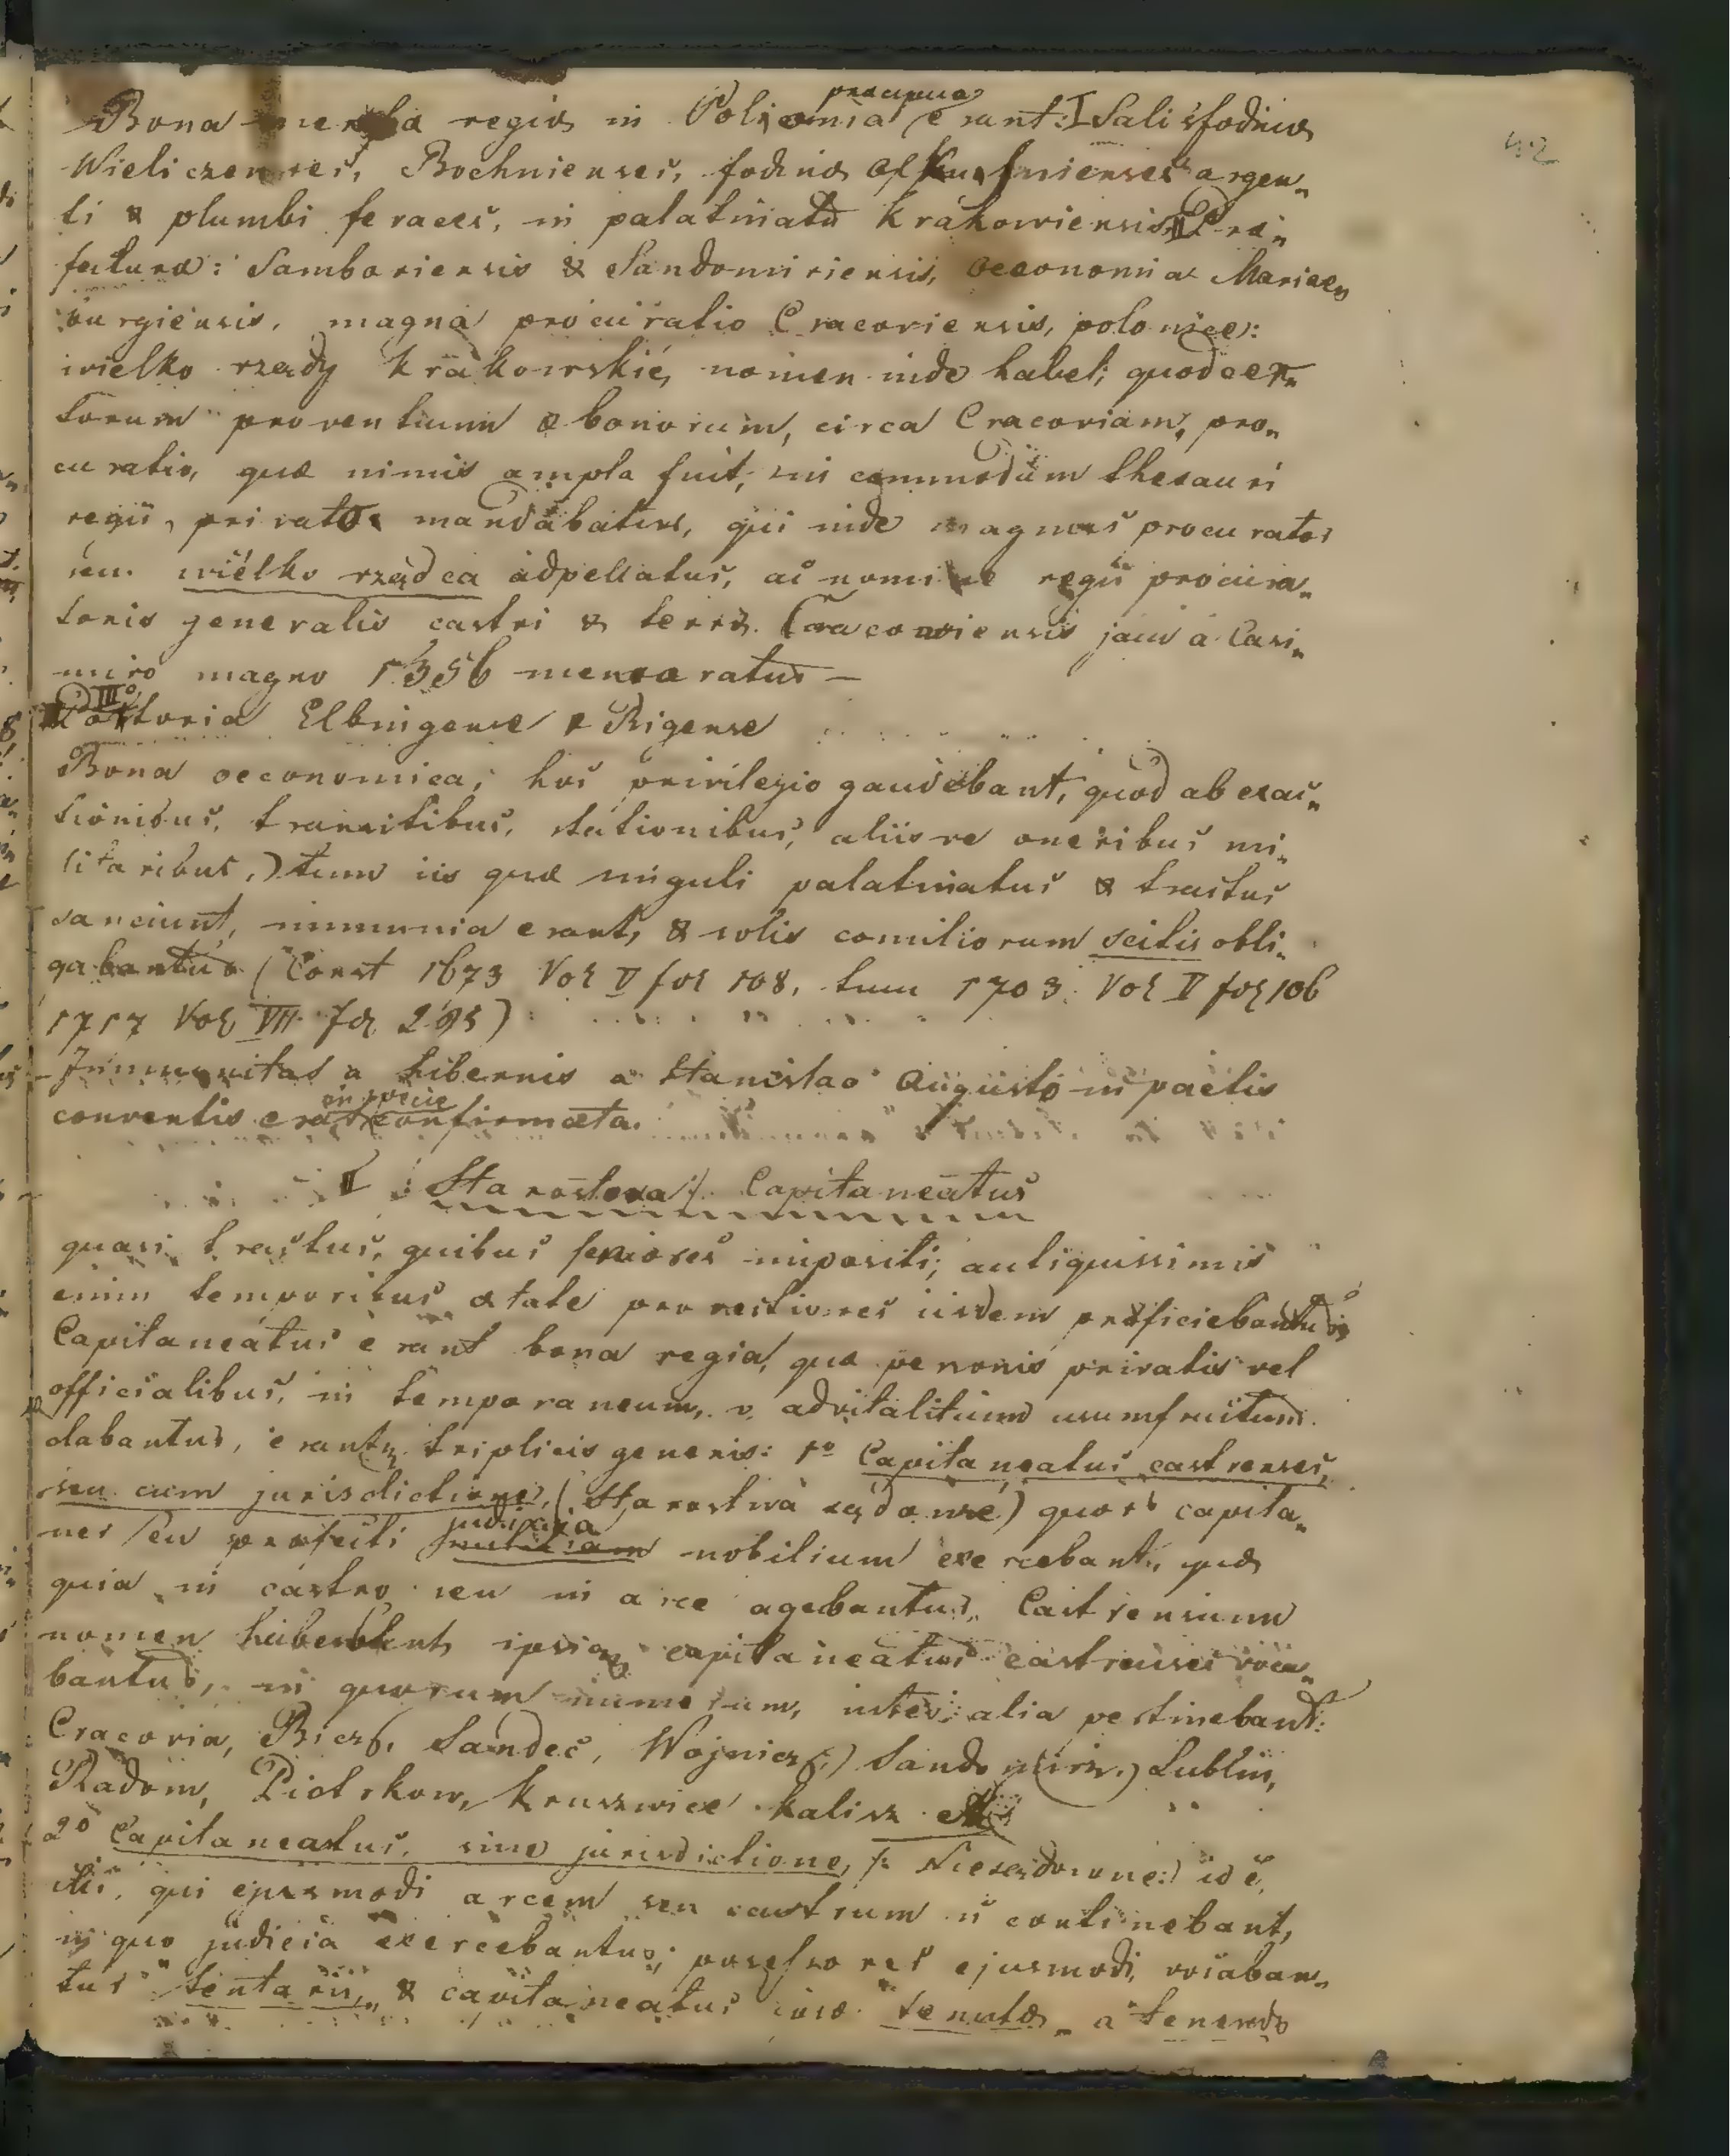 Bona mensæ regiæ in Polonia præcipua erant: I Salisfodinæ
Wieliczenses, Bochnienses, fodinæ Olkusnienses argen„
ti & plumbi feraces, in palatinatu Krakoviensis, II Præ„
fectura: Samboriensis & Sandomiriensis, oeconomia Mariae„
burgiensis, magna procuratio Cracoviensis, polonice:
wielko rządy krakowskié, nomen inde habet, quod cer„
torum proventuum & bonorum, circa Cracoviam, pro„
curatio, quæ nimis ampla fuit, in commodum thesauri
regii, privato mandabatur, qui inde magnus procurator
seu wiélko rządca adpellatus, ac nomine regii procura„
toris generalis castri & terræ Cracoviensis jam a Casi„
miro magno 1356 memoratus —
IIIº Portoria Elbingense & Rigense
Bona oeconomica, hoc privilegio gaudebant, quod ab exac„
tionibus, transitibus, stationibus, aliisve oneribus mi„
litaribus,) tum iis quæ singuli palatinatus & tractus
sanciunt, immunia erant, & solis comitiorum scitis obli„
gabantur (Const 1673 Vol V fol 108, tum 1703 Vol V fol 106
1717 Vol VII fol 285)
Immunitas a hibernis a Stanislao Augusto in pactis
conventis erat in specie confirmata.
II Starostwa /. Capitaneatus
quasi tractus, quibus seniores impositi; antiquissimis
enim temporibus ætate provectiores iisdem præficiebantur
Capitaneatus erant bona regia, quæ personis privatis vel
officialibus, in temporaneum, v. advitalitium usumfructum
dabantur, erantq triplicis generis: 1º Capitaneatus castrenses,
seu cum jurisdictione, (Starostwa sądowe) quorũ capita„
nei seu præfecti judicia nobilium exercebant, quæ
quia in castro seu in arce agebantur, Castrensium
nomen habebant, ipsiq capitaneatus castrenses voca„
bantur, in quorum numerum, inter alia pertinebant:
Cracovia, Biecz, Sandec, Wojnicz,) Sandomirz.) Lublin,
Radom, Piotrkow, Kruszwice Kalisz &
2º Capitaneatus, sine jurisdictione, /: Niesądowne:) id ẽ,
illi, qui ejusmodi arcem seu castrum ñ continebant,
in quo judicia exercebantur; possessores ejusmodi, vocaban„
tur "tentarii„ & capitaneatus ipse "tenutæ„ a tenendo